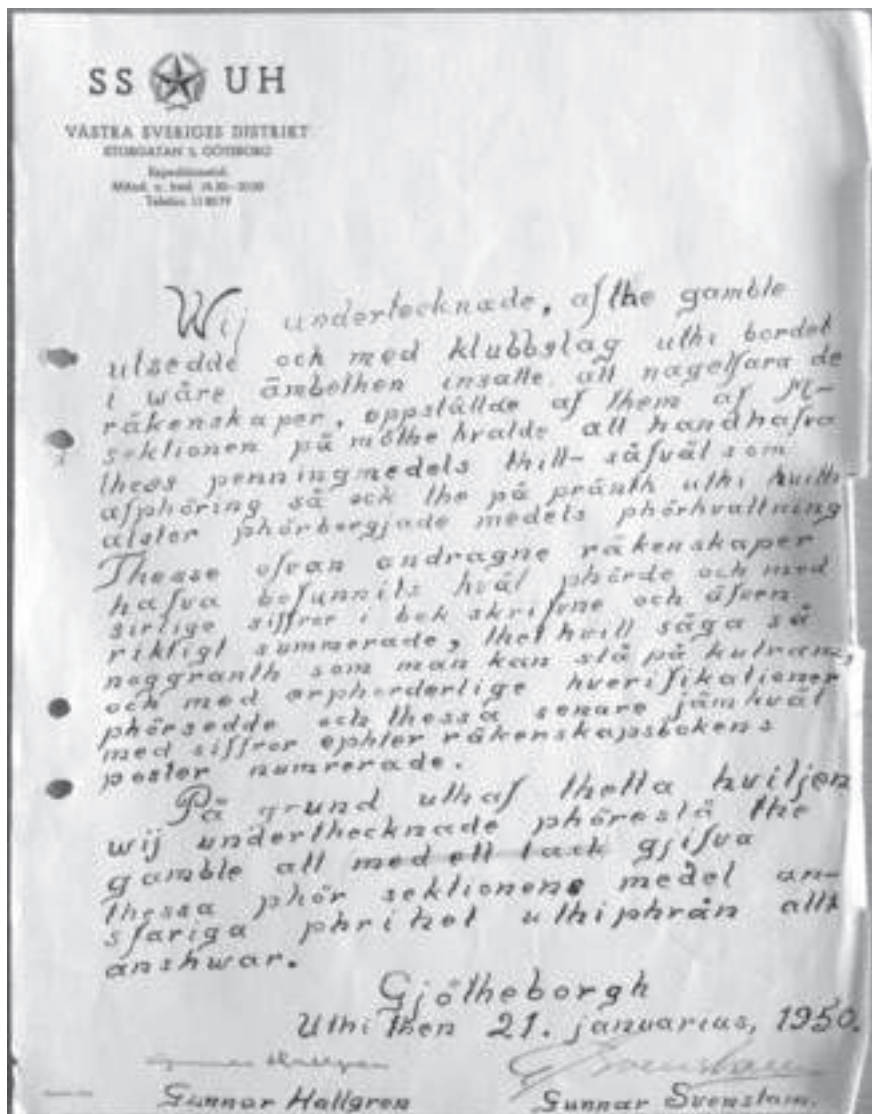 SS UH
VÄSTRA SVERIGES DISTRIKT
STORGATAN 5, GÖTEBORG
Expeditionstid:
Telefon
Wij undertecknade, af the gamble
utsedde och med klubbslag uthi bordet
i wåre ämbethen insatte, att nagelfara de
räkenskaper, oppställde af them af M-
sektionen på möthe hvalde att handhafva
thess penningmedels thill- såfväl som
afphöring så ock the på pränth uthi hvitth
alster phörbergjade medels phörhvaltning
Thesse ofvan andragne räkenskaper
hafva befunnits hväl phörde och med
sirlige siffror i bok skrifvne och äfven
riktigt summerade, thet hvill säga så
noggranth som man kan stå på kulram,
och med erphorderlige hverifikationer
phörsedde och thessa senare jämhväl
med siffror ephter räkenskapsbokens
poster numrerade.
På grund uthaf thetta hviljen
wij underthecknade phöreslå the
gamble att med ett tack gjifva
thessa phör sektionens medel an-
sfariga phrihet uthiphrån allt
anshwar.
Gjötheborgh
Uthi then 21. januarius, 1950.
Gunnar Hallgren Gunnar Svenstam.